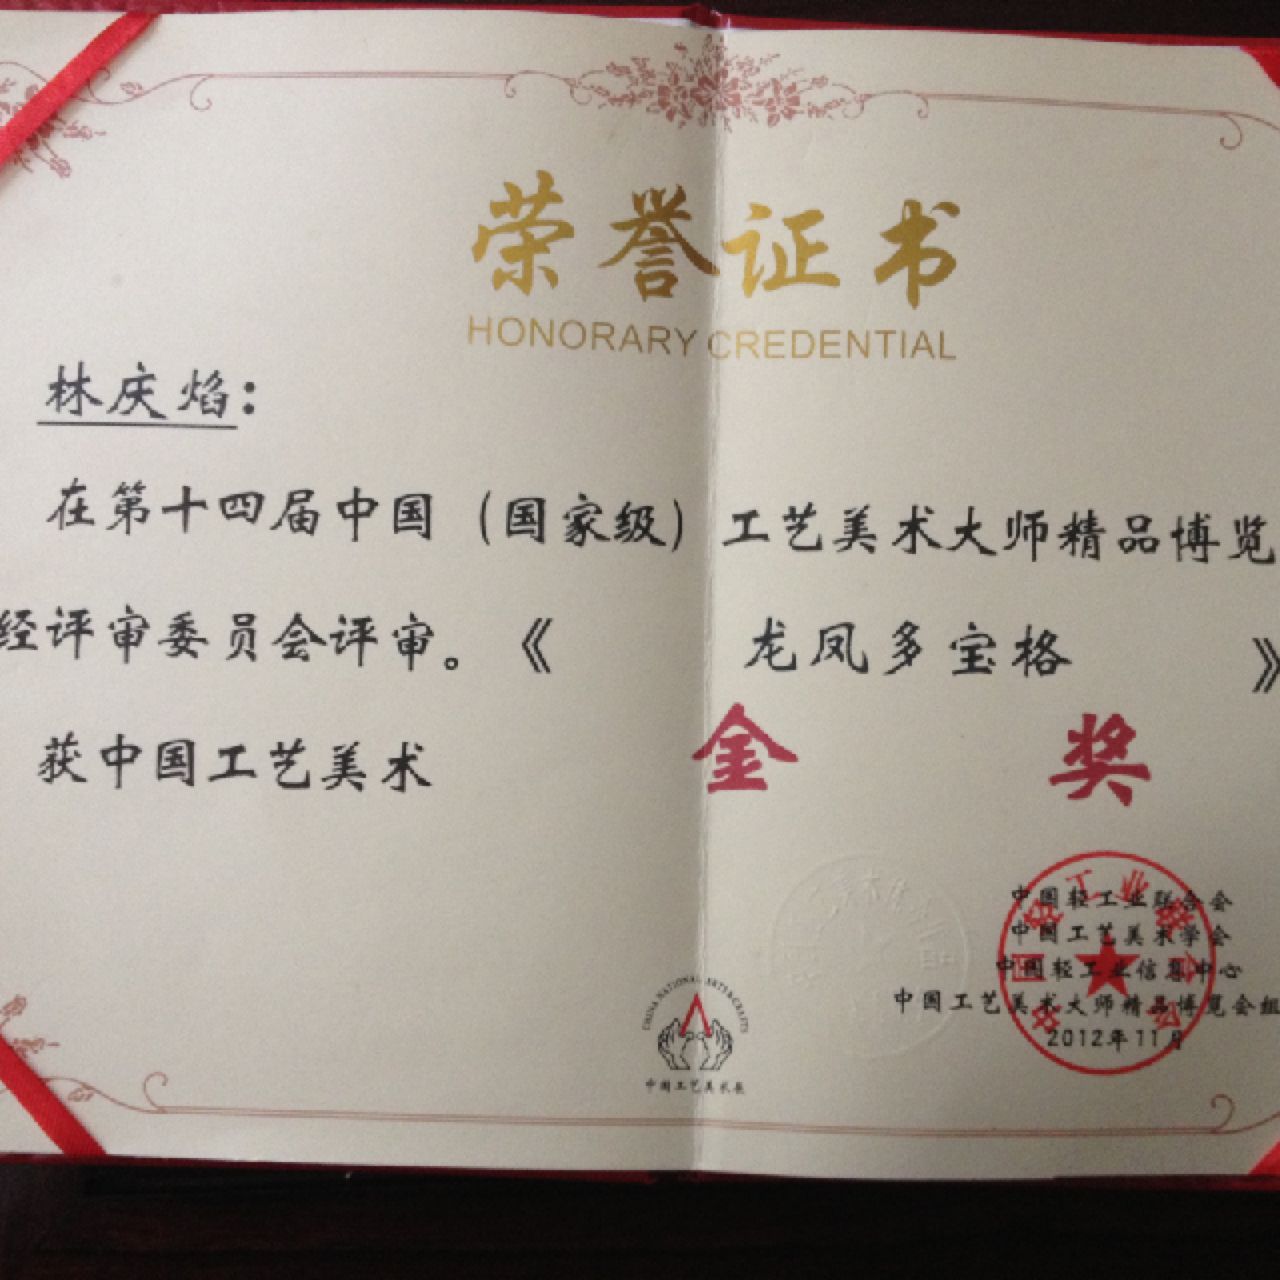 荣誉证书
HONORARY CREDENTIAL
林庆焰：
在第十四届中国（国家级）工艺美术大师精品博览
经评审委员会评审。《龙凤多宝格》
获中国工艺美术 金奖
中国轻工业联合会
中国工艺美术学会
中国轻工业信息中心
中国工艺美术大师精品博览会组
2012年11月
中国轻工业联合会
CHINA NATIONAL ARTS & CRAFTS
中国工艺美术展